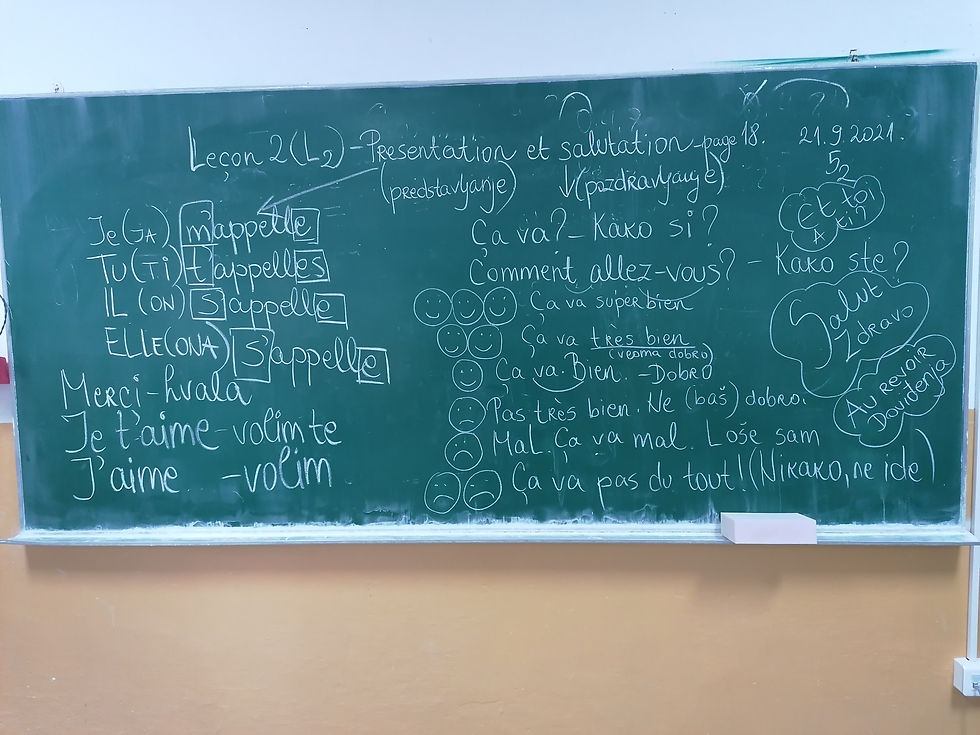 Leçon 2 (L2) - Présentation et salutation - page 18. 21.9.2021.
(predstavljanje) (pozdravljanje) 52
Je (JA) m'appelle
TU (TI) t'appelles
IL (ON) s'appelle
ELLE (ONA) s'appelle
Merci - hvala
Je t'aime - volim te
J'aime - volim
Ça va? - Kako si?
Comment allez-vous? - Kako ste?
Ça va super bien
Ça va très bien
(veoma dobro)
Ça va. Bien. - Dobro
Pas très bien. Ne (baš) dobro.
Mal. Ça va mal. Loše sam
Ça va pas du tout! (Nikako, ne ide)
Et toi
A ti?
Salut
Zdravo
Au revoir
Doviđenja